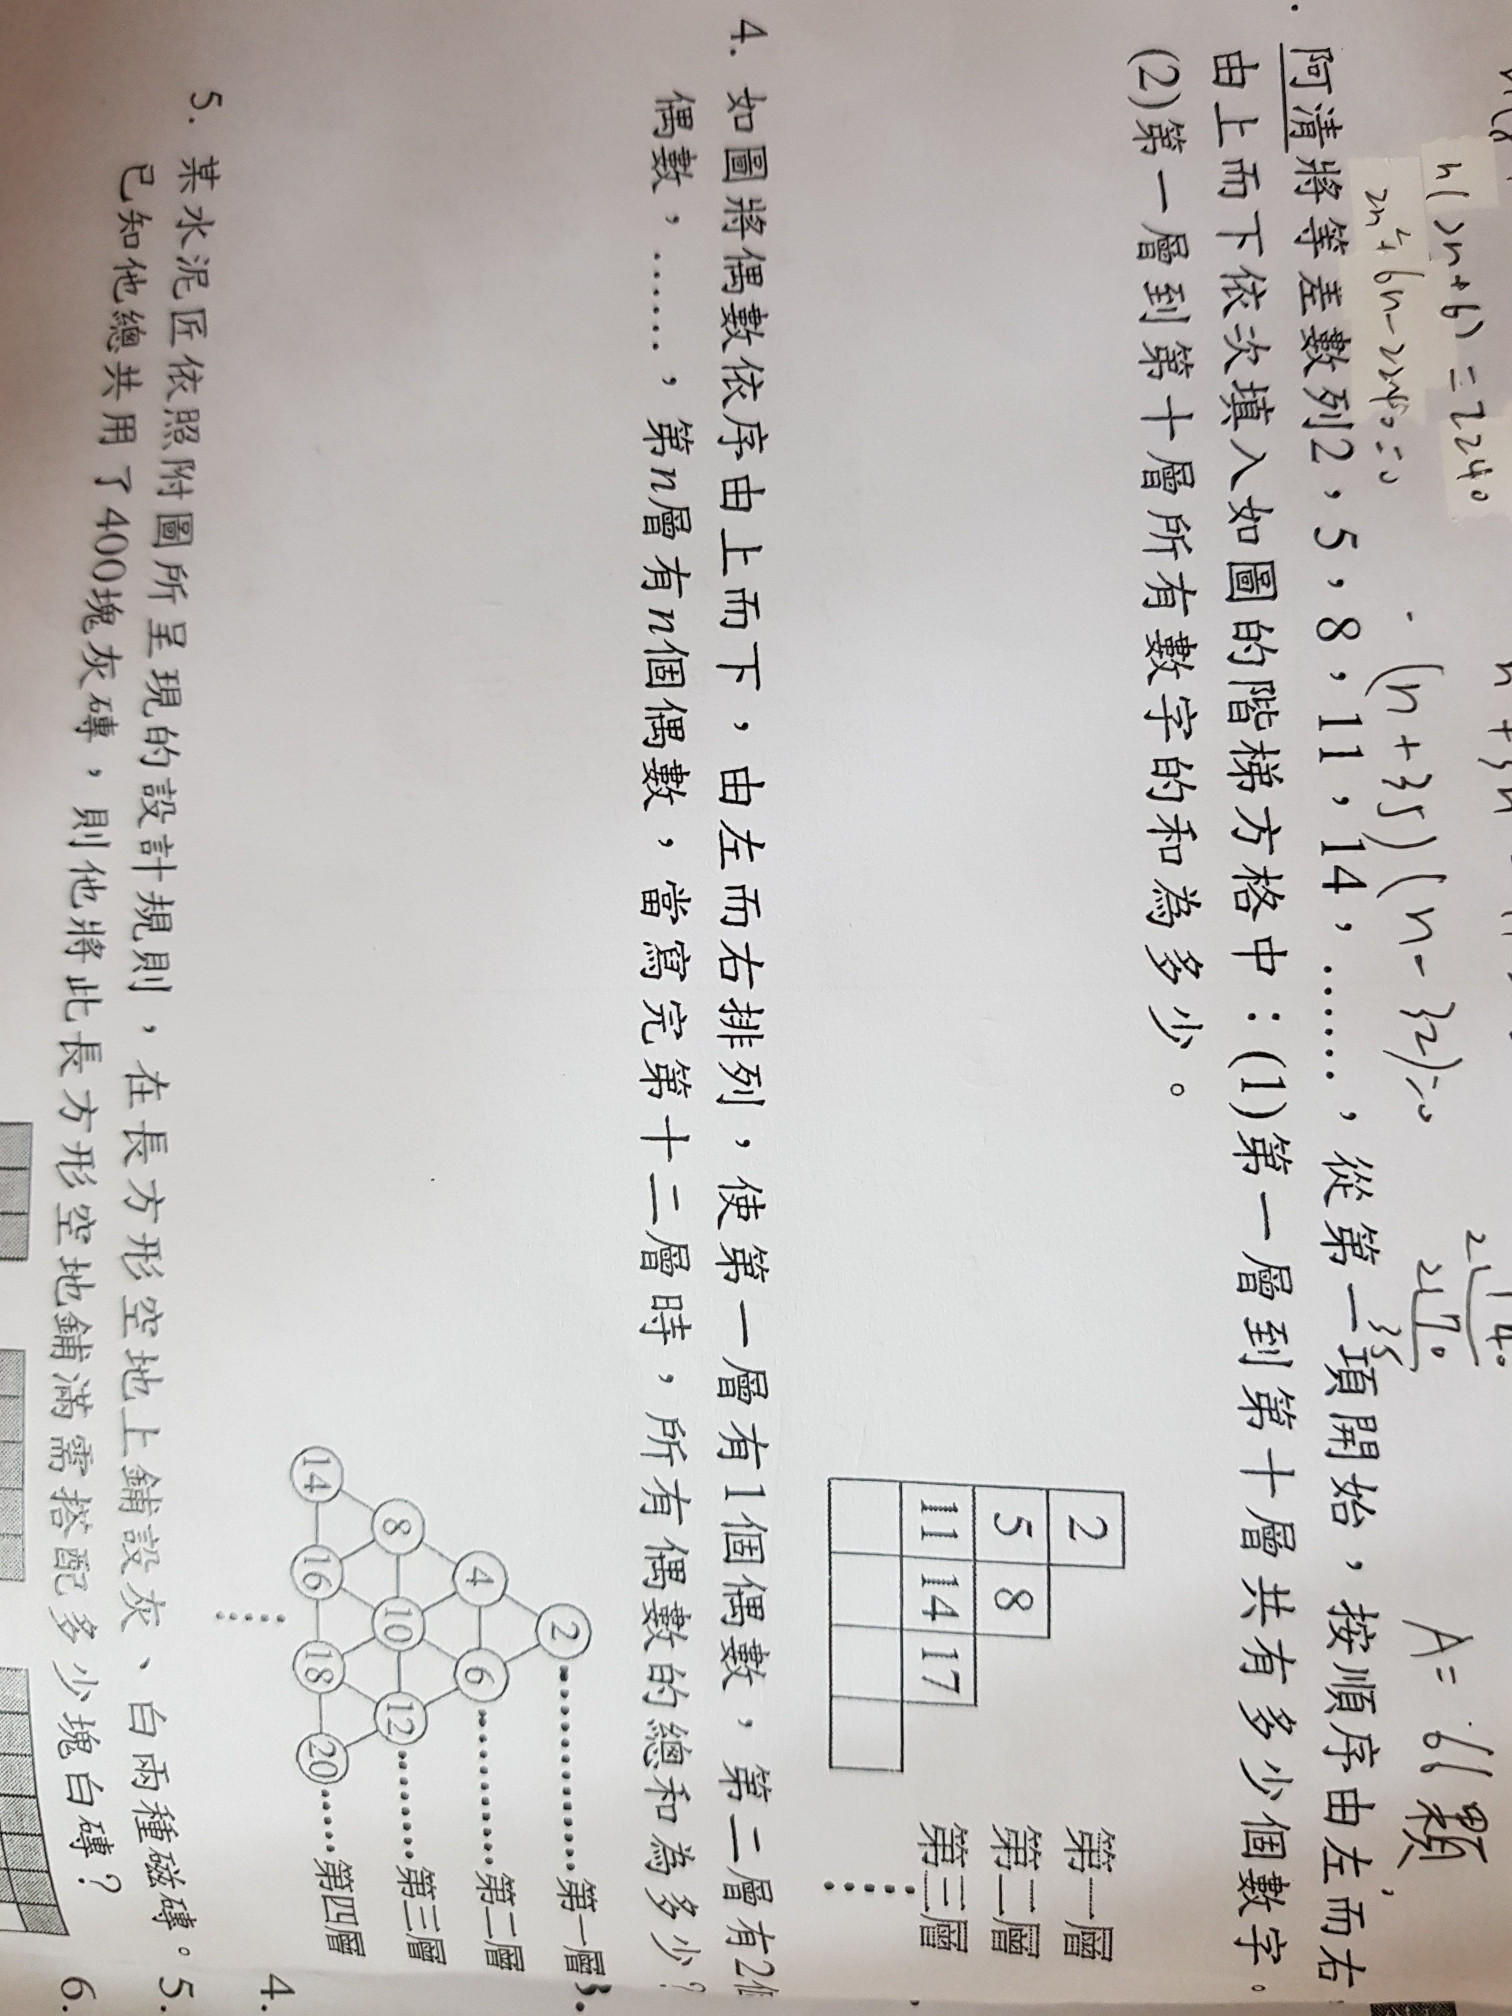 n(2n+6)=2240
2n²+6n-2240=0
(n+35)(n-32)=0
2 140
2 70
35
A=61顆
阿清將等差數列2,5,8,11,14,……,從第一項開始,按順序由左而右,
由上而下依次填入如圖的階梯方格中:(1)第一層到第十層共有多少個數字。
(2)第一層到第十層所有數字的和為多少。
2 第一層
5 8 第二層
11 14 17 第三層
3.
4. 如圖將偶數依序由上而下,由左而右排列,使第一層有1個偶數,第二層有2
偶數,……,第n層有n個偶數,當寫完第十二層時,所有偶數的總和為多少?
2 ……第一層
4 6 ……第二層
8 10 12 ……第三層
14 16 18 20 ……第四層
4.
5. 某水泥匠依照附圖所呈現的設計規則,在長方形空地上鋪設灰、白兩種磁磚。 5.
已知他總共用了400塊灰磚,則他將此長方形空地鋪滿需搭配多少塊白磚?
6.